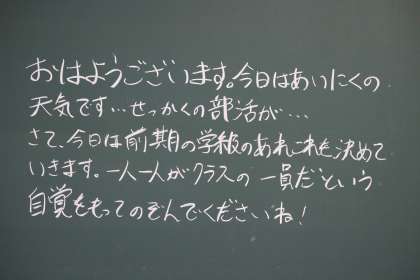 おはようございます。今日はあいにくの
天気です…せっかくの部活が…
さて、今日は前期の学級のあれこれを決めて
いきます。一人一人がクラスの一員だという
自覚をもってのぞんでくださいね!